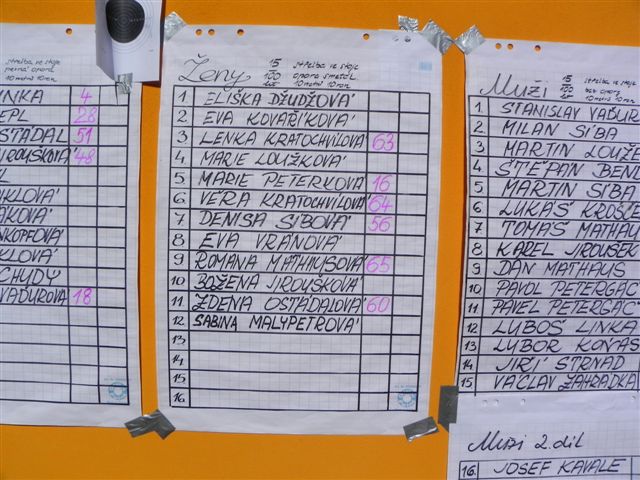 střelba ve stoje
pevná opora
10 metrů 10 ran
4
28
51
48
CHUDY
VADUROVÁ 18
Ženy
15 střelba ve stoje
100 opora
10 metrů 10 ran
1 ELIŠKA DŽUDŽOVÁ
2 EVA KOVAŘÍKOVÁ
3 LENKA KRATOCHVÍLOVÁ 63
4 MARIE LOUŽKOVÁ
5 MARIE PETERKOVÁ 16
6. VĚRA KRATOCHVÍLOVÁ 64
7 DENISA SIBOVÁ 56
8 EVA VRANOVÁ
9 ROMANA MATHAUSOVÁ 65
10 BOŽENA JIROUŠKOVÁ
11 ZDENA OSTÁDALOVÁ 60
12 SABINA MALYPETROVÁ
13
14
15
16.
Muži
15 střelba ve stoje
100 bez opory
10 metrů 10 ran
1. STANISLAV VADUR
2. MILAN SIBA
3 MARTIN LOUŽE
4 ŠTĚPÁN BEN
5 MARTIN SIBA
6 LUKÁŠ
7 TOMÁŠ MATHAU
8 KAREL JIROUŠEK
9 DAN MATHAUS
10 PAVOL PETERGÁČ
11 PAVEL PETERGÁČ
12 LUBOŠ LINKA
13 LUBOR KOŇAS
14 JIŘÍ STRNAD
15 VÁCLAV ZAHRÁDKA
Muži 2. díl
16. JOSEF KAVALE